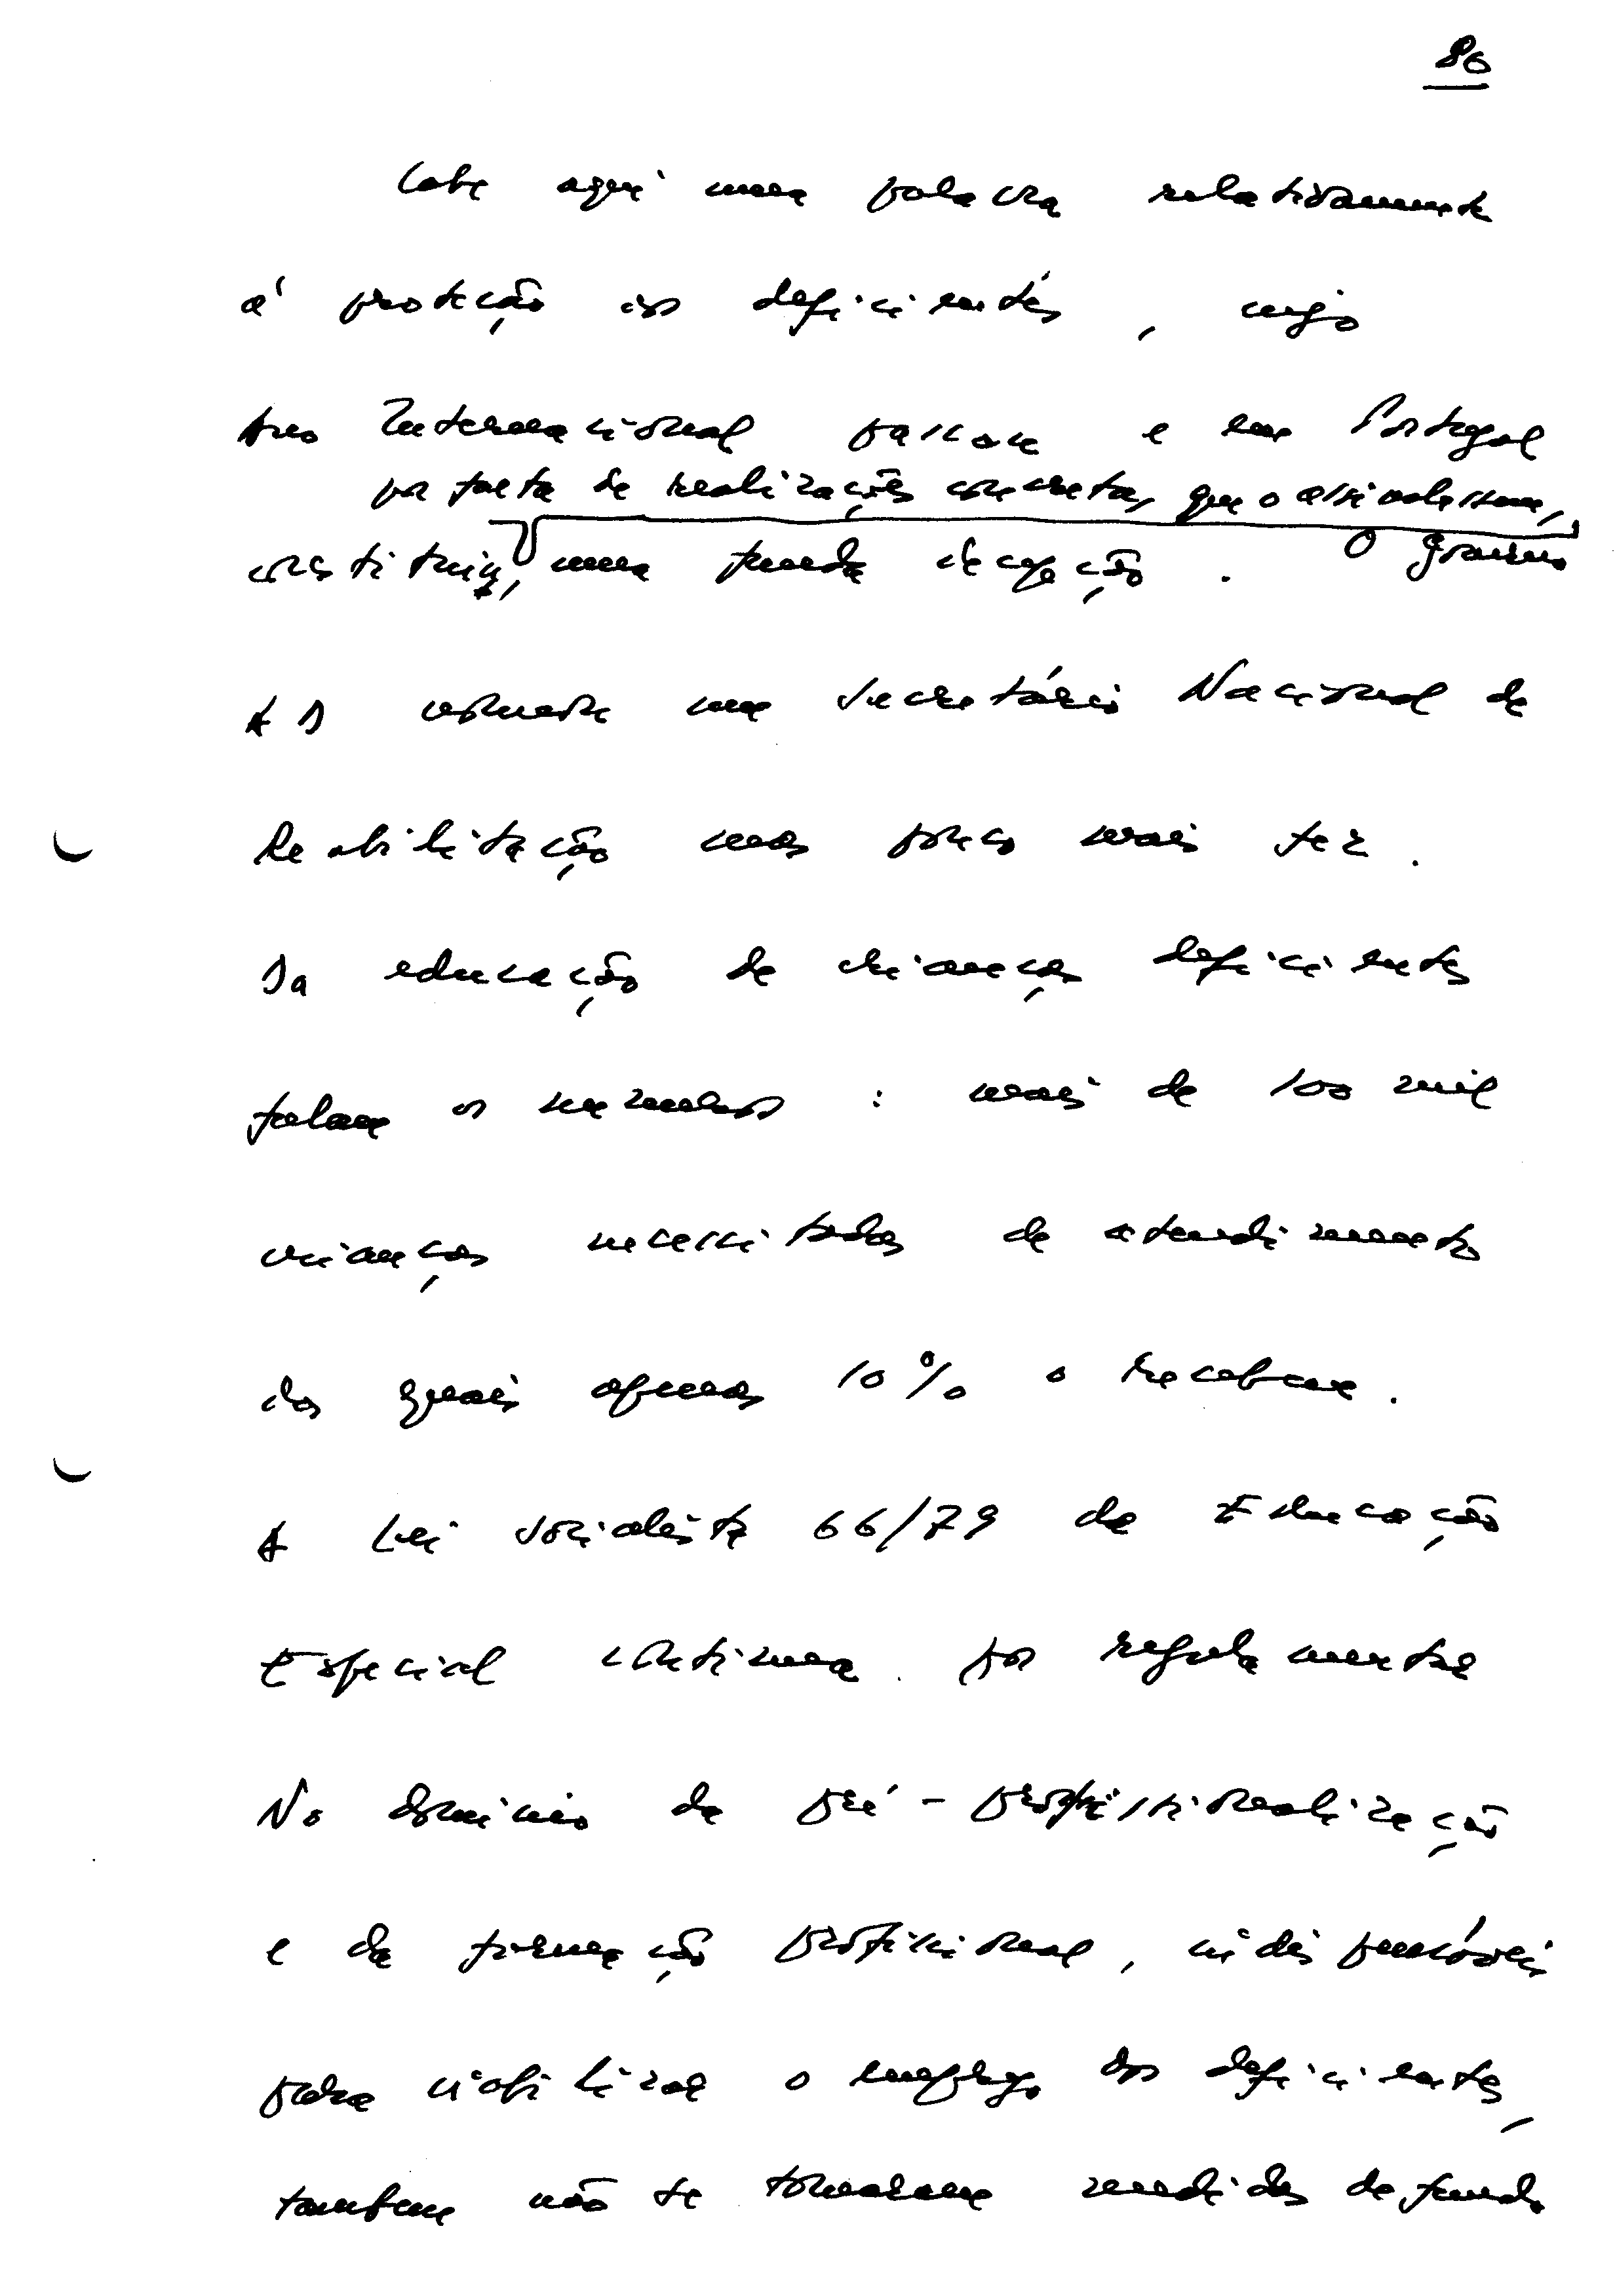 80
Cabe aqui uma palavra relativamente
à proteção dos deficientes, cujo
Ano Internacional passou e em Portugal
por falta de realizações concretas, que o assinalassem,
constituiu, uma funda decepção. O governo
AD nomeou um Secretário Nacional de
Reabilitação mas pouco mais fez.
Da educação de crianças deficientes
falam os números: mais de 100 mil
crianças necessitadas de atendimento
das quais apenas 10% o recebem.
A Lei socialista 66/79 da Educação
Especial continua por regulamentar
No domínio da pré-profissionalização
e da formação profissional, indispensáveis
para viabilizar o emprego dos deficientes,
também não se tomaram medidas de fundo